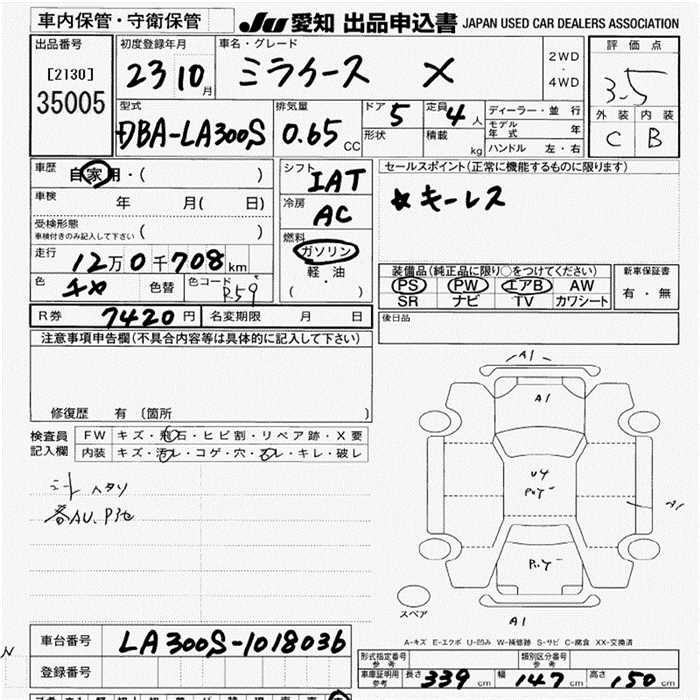 車内保管・守衛保管 JU 愛知 出品申込書 JAPAN USED CAR DEALERS ASSOCIATION
出品番号 [2130] 35005
初度登録年月 23 10月
車名・グレード ミライース X
2WD・4WD
評価点 3.5
外装 内装
C B
型式 DBA-LA300S
排気量 0.65 CC
ドア 5 定員 4人
形状 積載 kg
ディーラー・並行
モデル年式 年
ハンドル 左・右
車歴 自家用・( )
車検 年 月( 日)
受検形態 ( )
車検付きのみ記入して下さい
走行 12万0千708km
色 色替 色コード R59
シフト IAT
冷房 AC
燃料 ガソリン
軽・油
( )
セールスポイント(正常に機能するものに限ります)
キーレス
装備品(純正品に限り○をつけてください)
PS PW エアB AW
SR ナビ TV カワシート
新車保証書
有・無
R券 7420円 名変期限 月 日
後日品
注意事項申告欄(不具合内容等は具体的に記入して下さい)
修復歴 有 (箇所 )
検査員記入欄
FW キズ・飛石・ヒビ割・リペア跡・X要
内装 キズ・汚レ・コゲ・穴・スレ・キレ・破レ
A1
A1
U4
A1
A1
スペア
A-キズ E-エクボ U-凹み W-補修跡 S-サビ C-腐食 XX-交換済
車台番号 LA300S-1018036
登録番号
型式指定番号 参考 類別区分番号 参考
車庫証明用 参考 長さ 339cm 幅 147cm 高さ 150cm